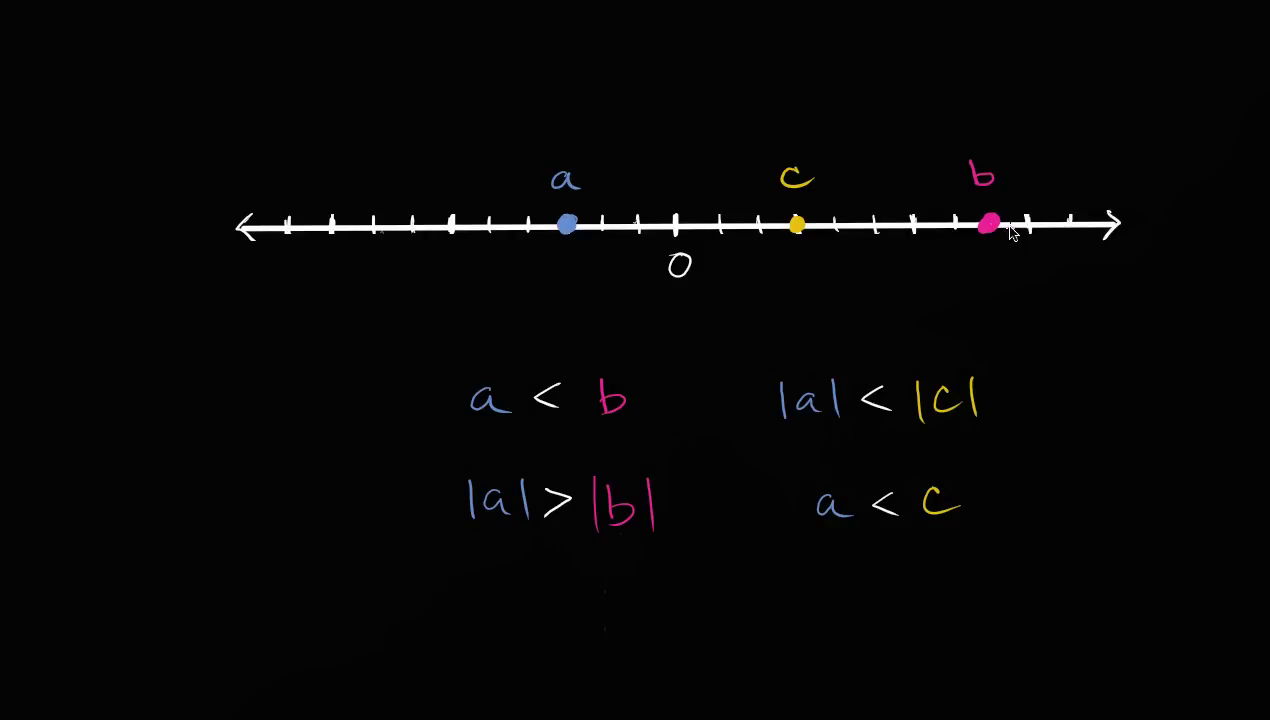 a c b
0
a < b |a| < |c|
|a| > |b| a < c